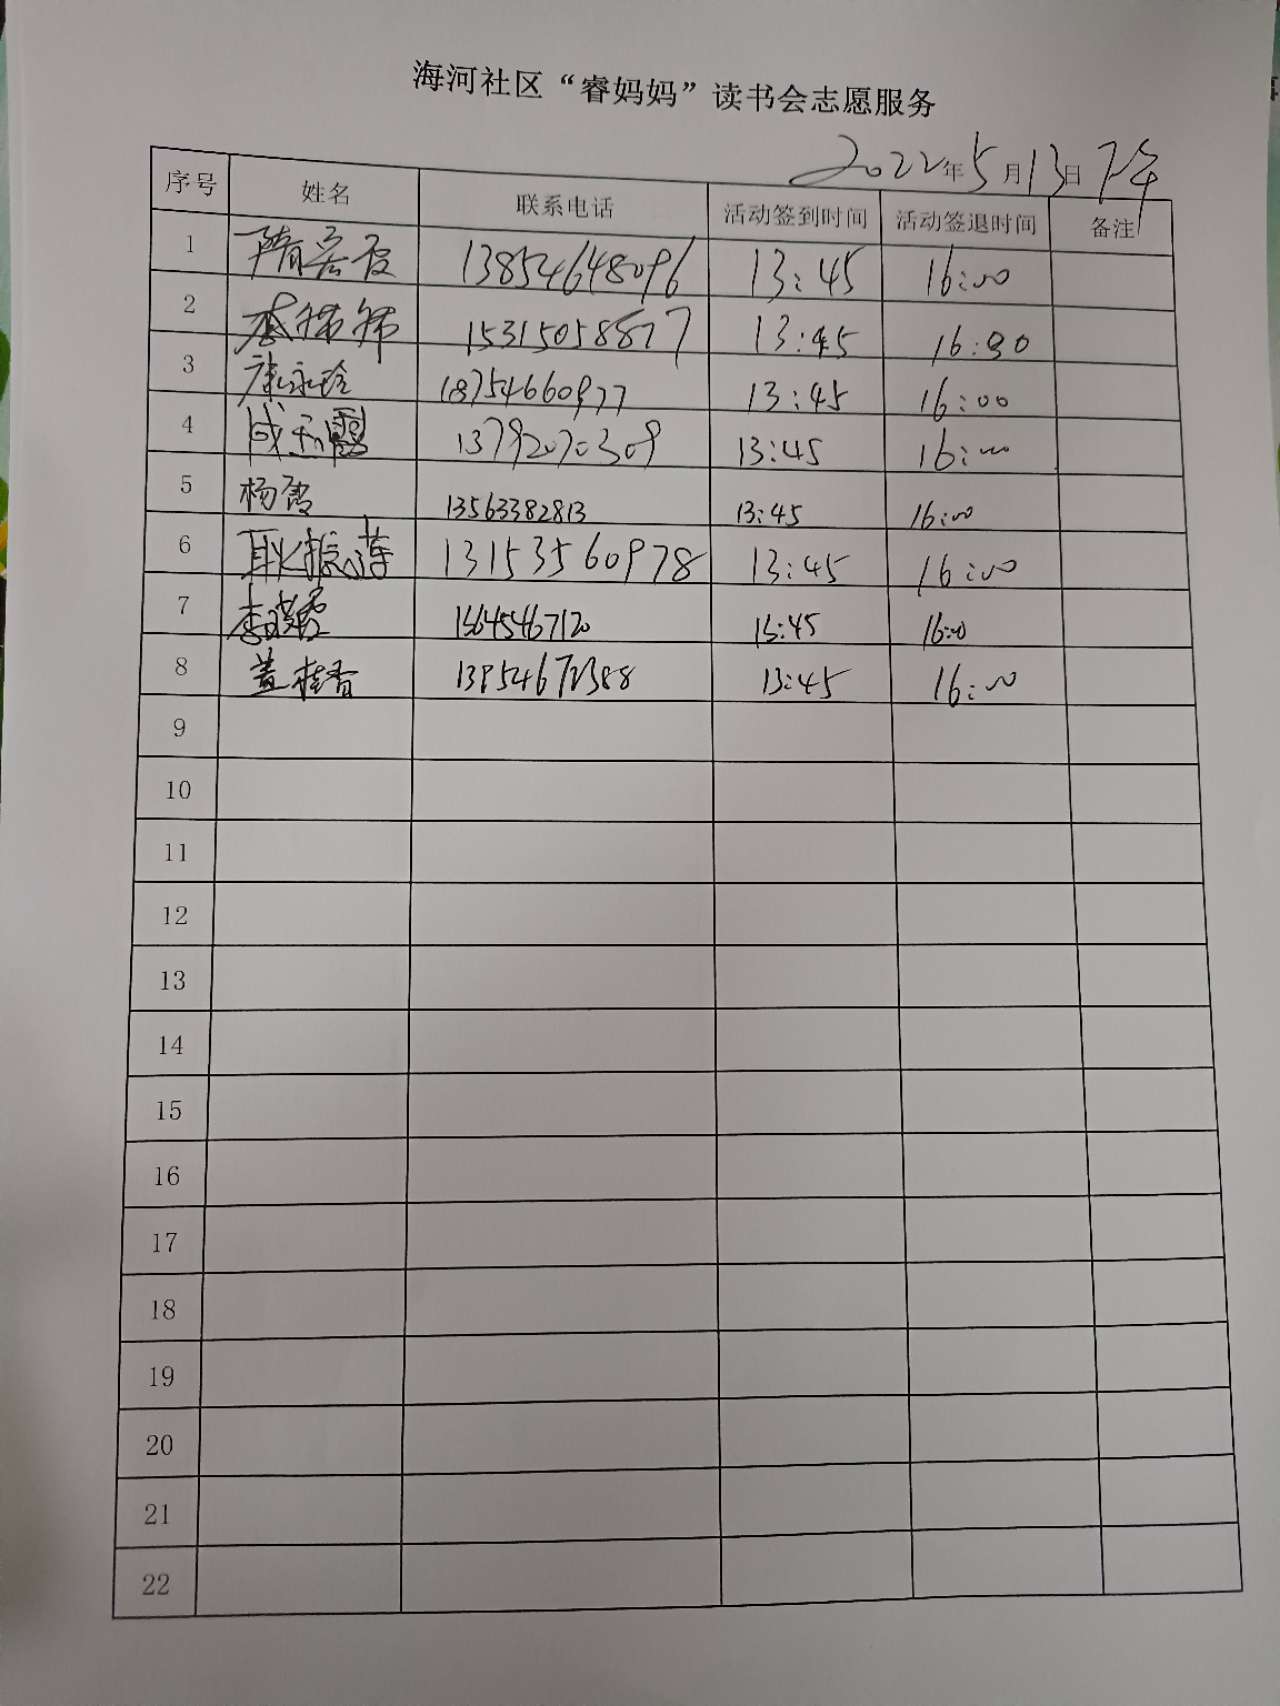 海河社区“睿妈妈”读书会志愿服务
2022年5月13日下午
序号 姓名 联系电话 活动签到时间 活动签退时间 备注
1 13854648096 13:45 16:00
2 15315058577 13:45 16:30
3 康永玲 18754660977 13:45 16:00
4 13792070309 13:45 16:00
5 杨霞 13563382813 13:45 16:00
6 耿振莲 13153560978 13:45 16:00
7 李晓霞 15645467120 13:45 16:00
8 盖桂香 13954672388 13:45 16:00
9
10
11
12
13
14
15
16
17
18
19
20
21
22